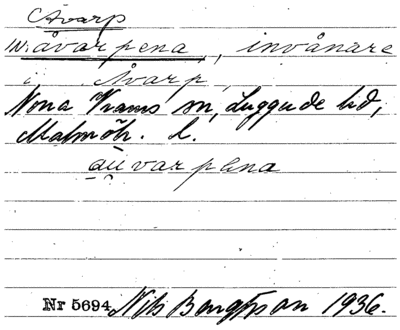 Åvarp
IN. åvarpena, invånare
i Åvarp,
Norra Vrams sn, Luggude hd,
Malmöh. l.
auvarpena
Nr 5694 Nils Bengtsson 1936.